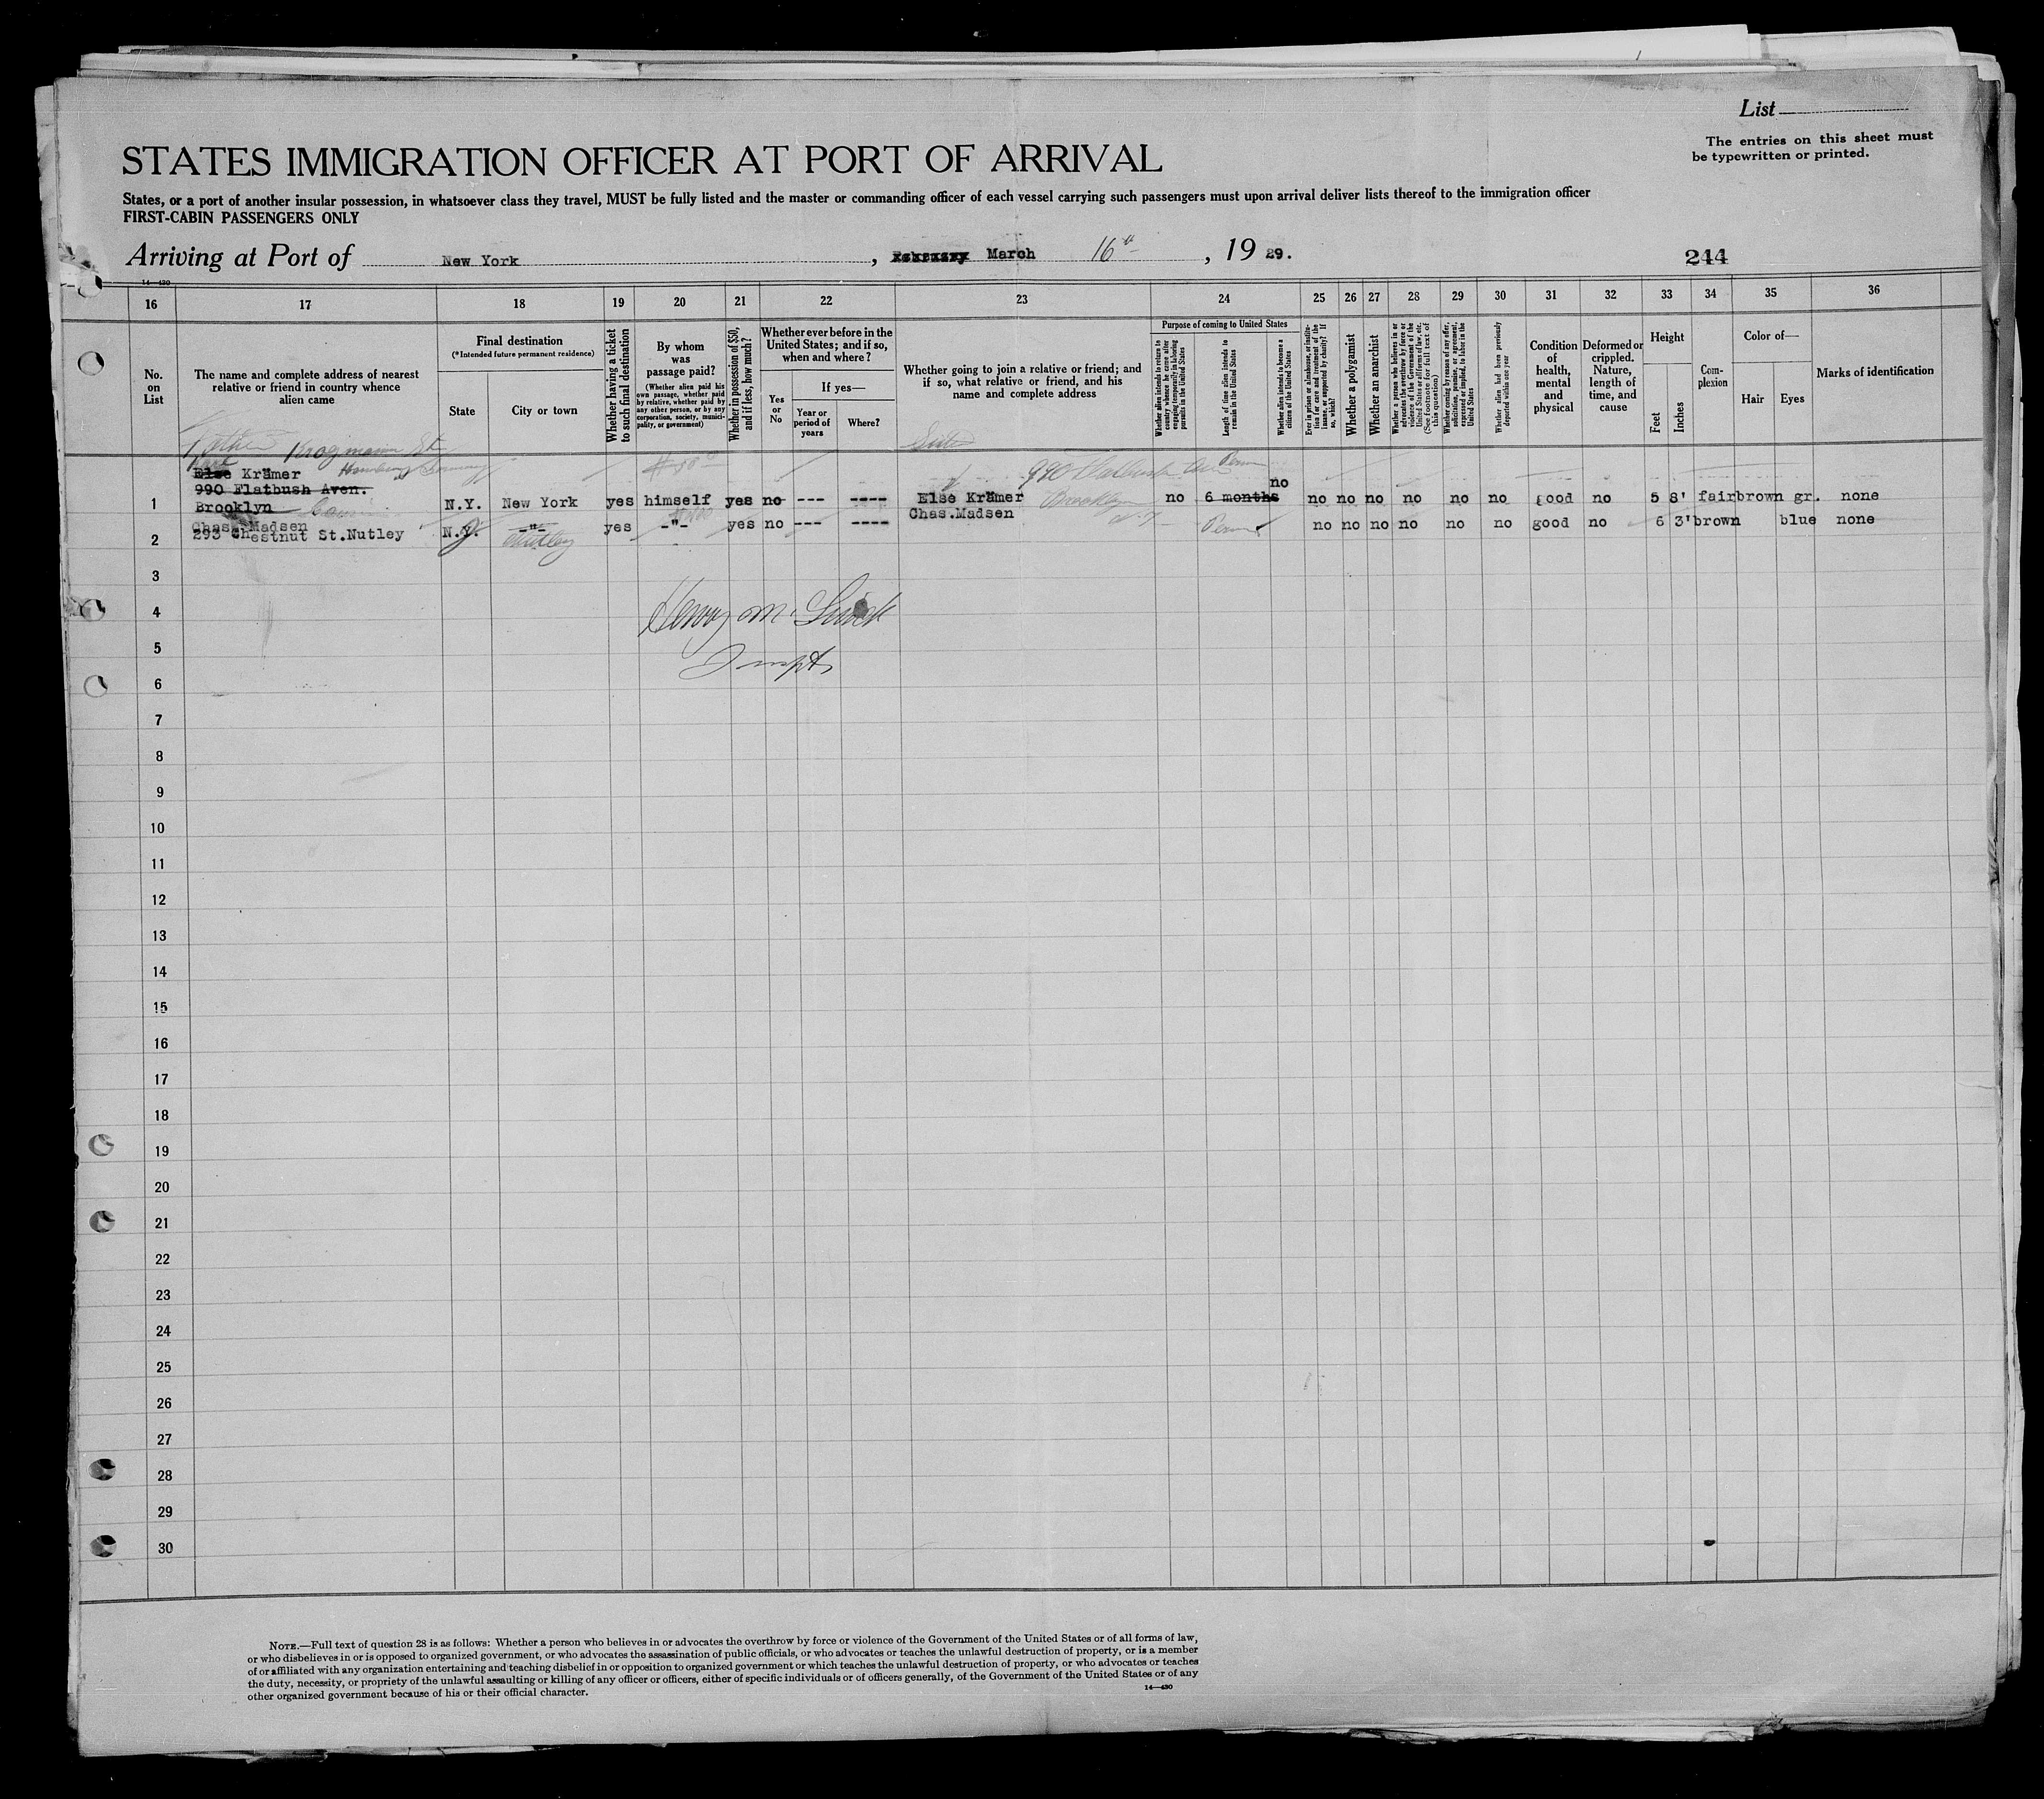 List
The entries on this sheet must
be typewritten or printed.
STATES IMMIGRATION OFFICER AT PORT OF ARRIVAL
States, or a port of another insular possession, in whatsoever class they travel, MUST be fully listed and the master or commanding officer of each vessel carrying such passengers must upon arrival deliver lists thereof to the immigration officer
FIRST-CABIN PASSENGERS ONLY
Arriving at Port of New York, March 16th, 1929.
244
14—430
16 17 18 19 20 21 22 23 24 25 26 27 28 29 30 31 32 33 34 35 36
No. on List
The name and complete address of nearest relative or friend in country whence alien came
Final destination
(*Intended future permanent residence)
State
City or town
Whether having a ticket to such final destination
By whom was passage paid?
(Whether alien paid his own passage, whether paid by relative, whether paid by any other person, or by any corporation, society, municipality, or government)
Whether in possession of $50, and if less, how much?
Whether ever before in the United States; and if so, when and where?
Yes or No
If yes—
Year or period of years
Where?
Whether going to join a relative or friend; and if so, what relative or friend, and his name and complete address
Purpose of coming to United States
Whether alien intends to return to country whence he came after engaging temporarily in laboring pursuits in the United States
Length of time alien intends to remain in the United States
Whether alien intends to become a citizen of the United States
Ever in prison or almshouse, or institution for care and treatment of the insane, or supported by charity? If so, which?
Whether a polygamist
Whether an anarchist
Whether a person who believes in or advocates the overthrow by force or violence of the Government of the United States or all forms of law, etc. (See footnote for full text of this question)
Whether coming by reason of any offer, solicitation, promise, or agreement, expressed or implied, to labor in the United States
Whether alien had been previously deported within one year
Condition of health, mental and physical
Deformed or crippled. Nature, length of time, and cause
Height
Feet
Inches
Complexion
Color of—
Hair
Eyes
Marks of identification
Father Krogmann St.
Hamburg Germany
Else Krämer
990 Flatbush Aven.
1 Brooklyn N.Y. New York yes himself yes no --- ---- Else Krämer no 6 months no no no no no no no good no 5 8' fair brown gr. none
Sister
990 Flatbush Ave
Brooklyn
Perm
Chas. Madsen
2 293 Chestnut St. Nutley N.Y. -"- yes -"- yes no --- ---- Chas.Madsen Perm no no no no no no good no 6 3' brown blue none
J
Nutley
Cousin
3
4
Henry M.
5
Inspt,
6
7
8
9
10
11
12
13
14
15
16
17
18
19
20
21
22
23
24
25
26
27
28
29
30
NOTE.—Full text of question 28 is as follows: Whether a person who believes in or advocates the overthrow by force or violence of the Government of the United States or of all forms of law,
or who disbelieves in or is opposed to organized government, or who advocates the assassination of public officials, or who advocates or teaches the unlawful destruction of property, or is a member
of or affiliated with any organization entertaining and teaching disbelief in or opposition to organized government or which teaches the unlawful destruction of property, or who advocates or teaches
the duty, necessity, or propriety of the unlawful assaulting or killing of any officer or officers, either of specific individuals or of officers generally, of the Government of the United States or of any
other organized government because of his or their official character.
14—430